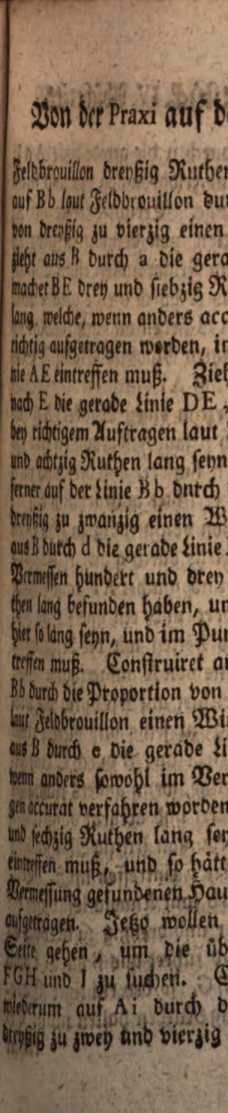 Von der Praxi auf d
Feldbrouillon dreyßig Ruthen
auf Bb laut Feldbrouillon dur
von dreyßig zu vierzig einen
zieht aus B durch a die gera
machet BE drey und siebzig R
lang, welche, wenn anders acc
richtig aufgetragen worden, in
nie AE eintreffen muß. Zieh
nach E die gerade Linie DE,
bey richtigem Auftragen laut
und achtzig Ruthen lang seyn
ferner auf der Linie Bb durch
dreyßig zu zwanzig einen W
aus B durch d die gerade Linie
Vermessen hundert und drey
then lang befunden haben, un
hier so lang seyn, und im Pun
treffen muß. Construiret au
Bb durch die Proportion von
laut Feldbrouillon einen Wi
aus B durch e die gerade Li
wenn anders sowohl im Ver
gen accurat verfahren worden
und sechzig Ruthen lang sey
eintreffen muß, und so hätt
Vermessung gefundenen Hau
aufgetragen. Jetzo wollen
Seite gehen, um die üb
FGH und I zu suchen. C
wiederum auf Ai durch d
dreyßig zu zwey und vierzig